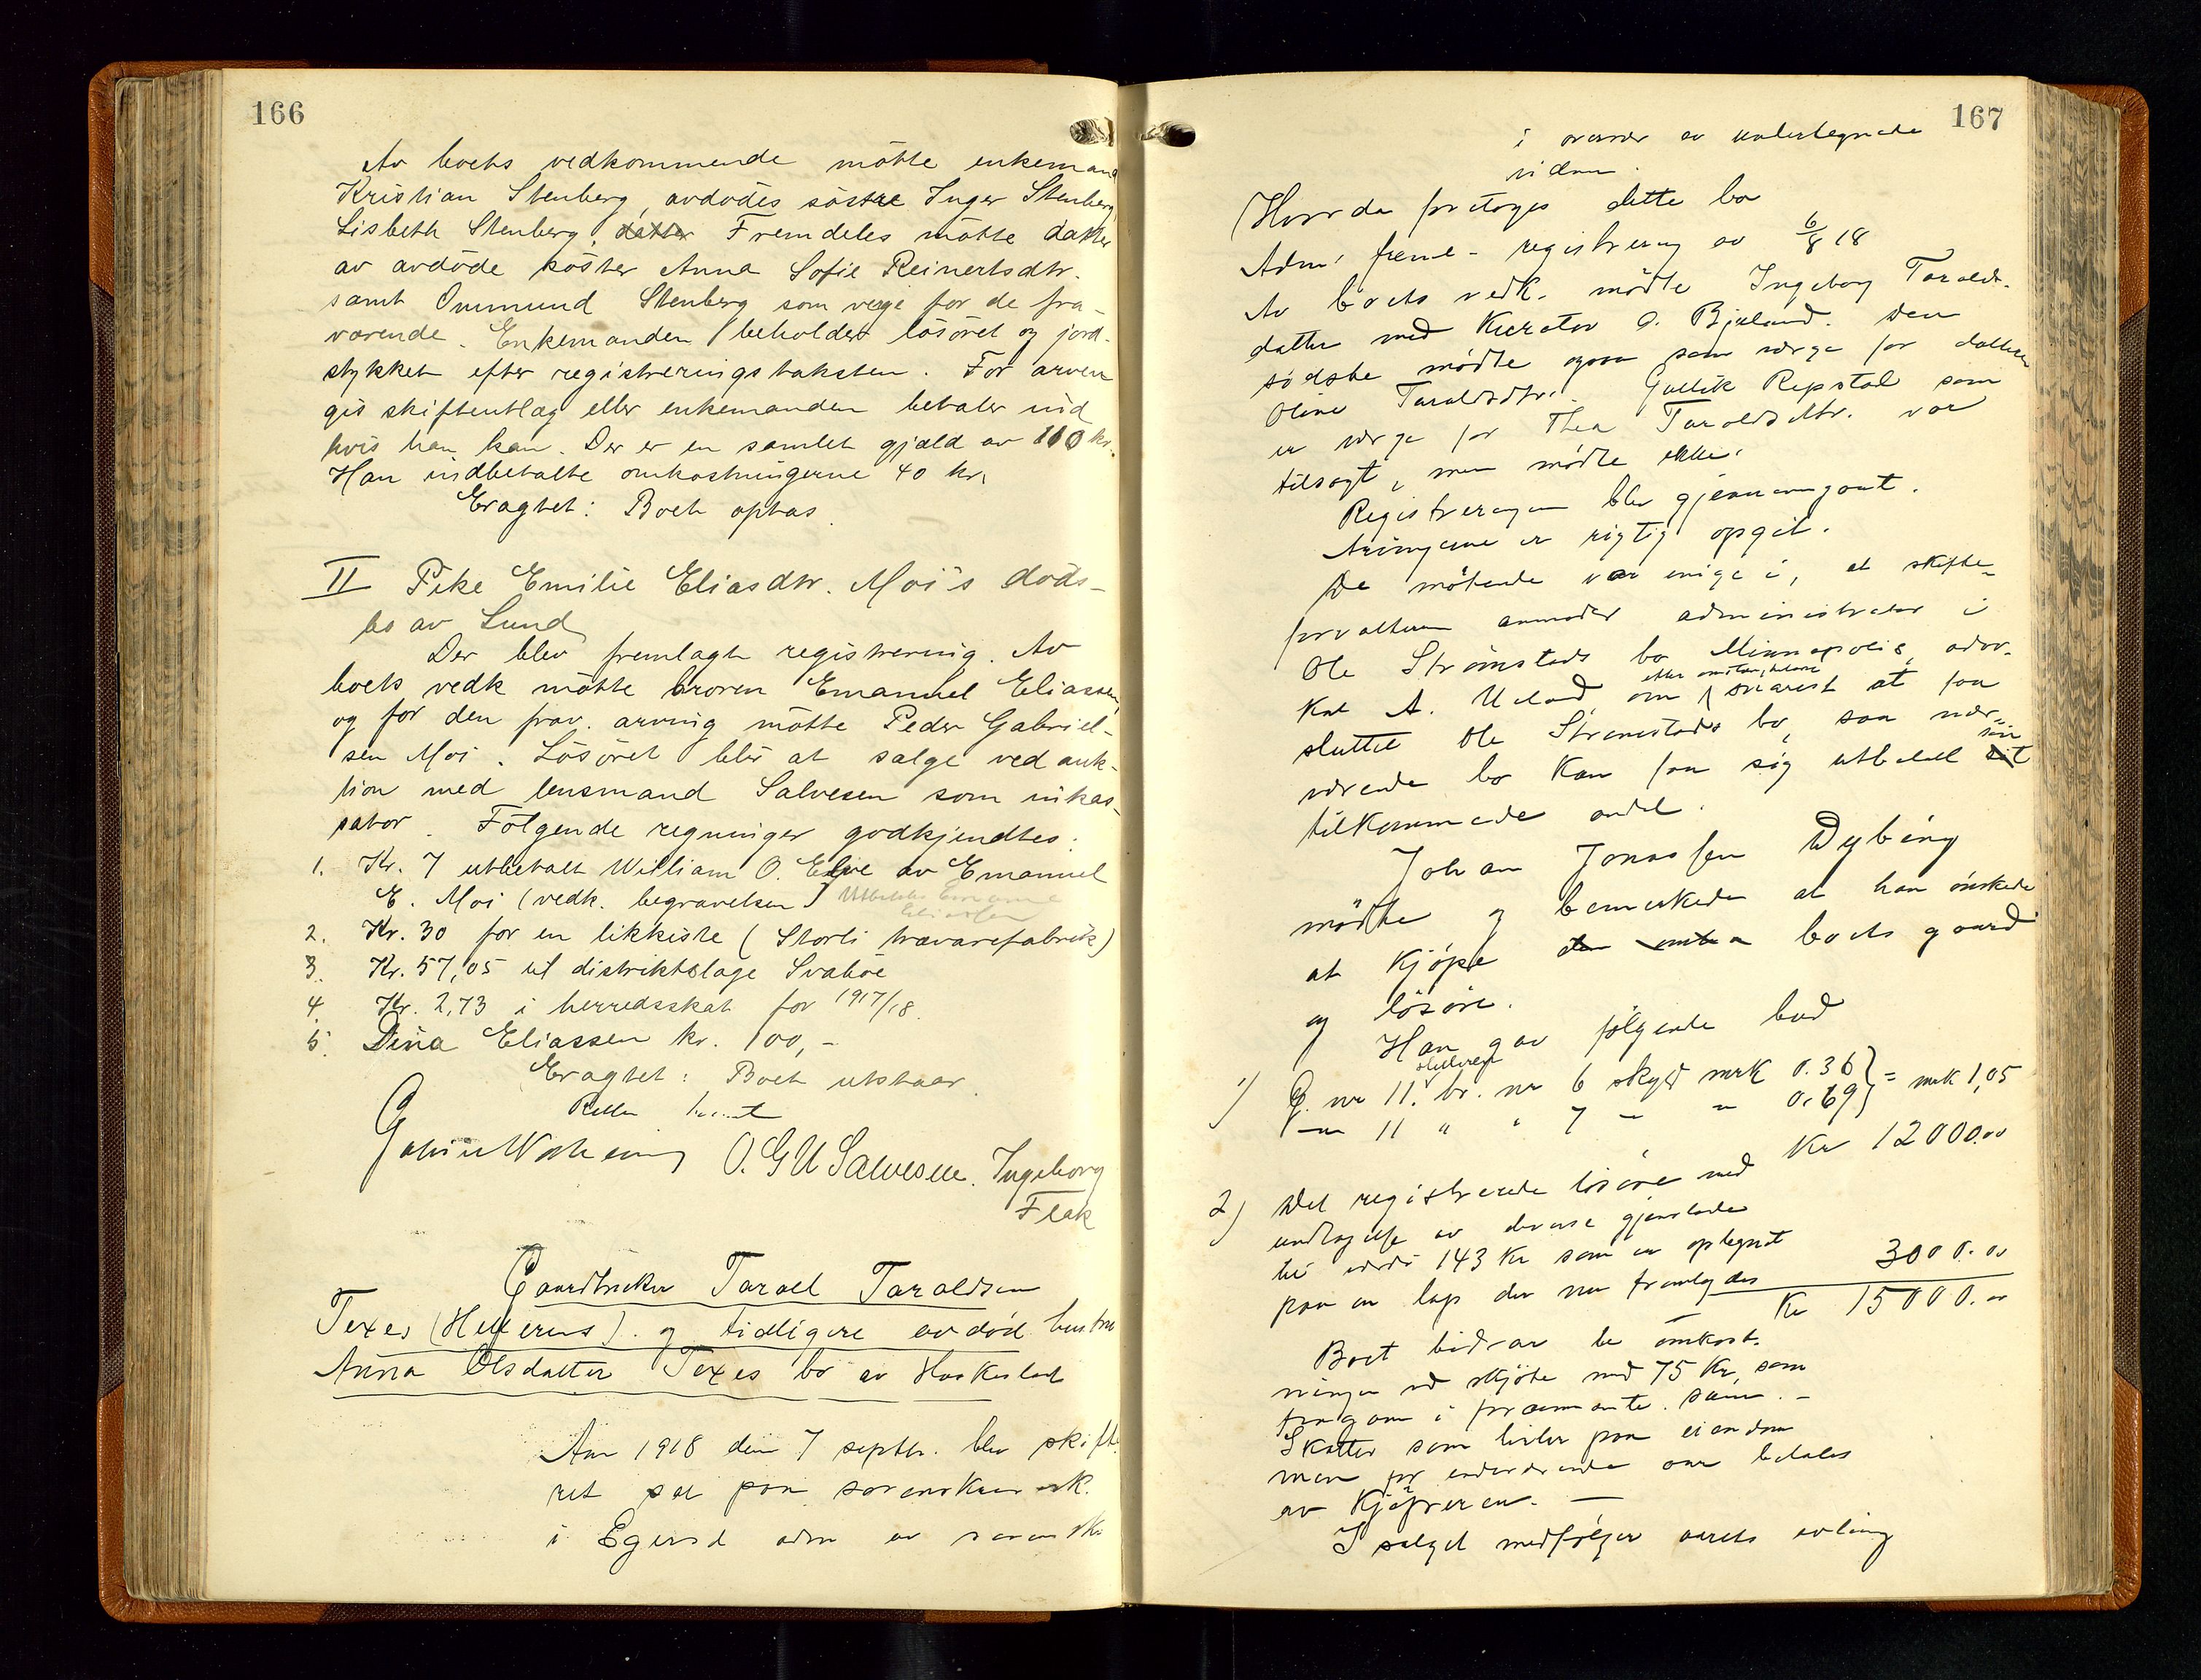 166
Av boets vedkommende møtte enkemand
Kristian Stenberg, avdødes søstre Inger Stenberg
Lisbeth Stenberg, datter Fremdeles møtte datter
av avdøde søster Anna Sofie Reinertsdtr.
samt Ommund Stenberg som verge for de fra-
værende. Enkemanden beholder løsøret og jord-
stykket efter registreringstaksten. For arven
gis skiftentlæg eller enkemanden betaler ind
hvis han kan. Der er en samlet gjæld av 110 kr.
Han indbetalte omkostningerne 40 kr.
Eragtet: Boet optas
II Pike Emilie Eliasdtr. Moi's døds-
bo av Lund
Der blev fremlagt registrering. Av
boets vedk møtte broren Emanuel Eliassen,
og for den frav. arving møtte Peder Gabriel-
sen Moi. Løsøret blir at sælge ved auk-
tion med lensmand Salvesen som inkas-
sator. Følgende regninger godkjendtes:
1. Kr. 7 utbetalt William O. Eyie av Emanuel
E. Moi (vedk. begravelsen) Utbetales Emanuel
Eliassen
2. Kr. 30 for en likkiste (Storli trævarefabrik)
3. Kr. 57,05 til distriktslæge Svabøe
4. Kr. 2,73 i herredsskat for 1917/18.
5. Dina Eliassen kr. 100,-
Eragtet: Boet utstaar
Retten hævet
O. G U Salvesen. Ingeborg
Fleak
Gaardbruker Tarald Taraldsen
Texes (Hellerens). og tidligere avdød hustru
Anna Olsdatter Texes bo av Haakestad
Aar 1918 den 7 septbr. blev skifte-
ret sat paa sorenskriverk.
i Egersd adm av sorenskr
167
i overvær av undertegnede
vidner.
Hvorda foretoges dette bo
Adm. freml. registrering av 6/8 18
Av boets vedk. mødte Ingeborg Taralds-
datter med Kurator O. Bjelland. Den
sidste mødte ogsaa som værge for datteren
Oline Taraldsdtr. Gullik Repstad som
er værge for Thea Taraldsdtr. var
tilsagt, men mødte ikke.
Registreringen blev gjennemgaat.
Arvingerne er rigtig opgit.
De møtende var enige i, at skifte-
forvalteren anmoder administrator i
Ole Strømstads bo Minnapolis, advo-
kat A. Ueland, om efter omstændighetene snarest at faa
sluttet Ole Strømstads bo, saa nær-
værende bo kan faa sig utbetalt sit sin
tilkommende andel.
Johan Jonassen Dybing
mødte og bemerkede at han ønskede
at kjøpe boets gaard
og løsøre.
Han gav følgende bud
1) G. nr 11. br. nr 6 skyld mrk 0.36 } = mrk 1,05
- 11 " " 7 - " 0.69
Kr 12000.00
2) Det registrerede løsøre med
undtagelse av diverse gjenstande
til værdi 143 Kr som er optegnet
paa en lap der nu fremlægdes 3000.00
Kr 15000.00
Boet bidrar til omkost-
ninger ved skjøte med 75 Kr, som
fragaar i forannævnte sum. -
Skatter som hviler paa eiendom-
men for inderværende aar betales
av Kjøperen. -
I salget medfølger aarets avling